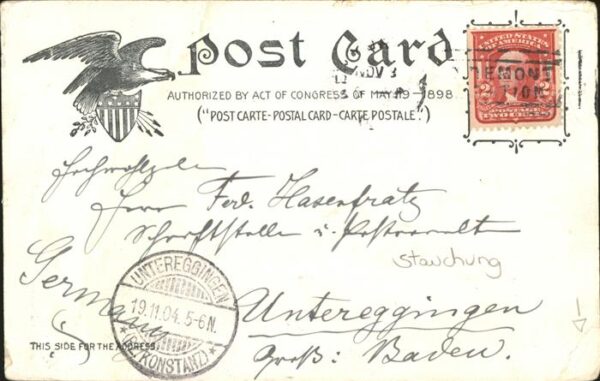 Post Card
AUTHORIZED BY ACT OF CONGRESS OF MAY 19-1898.
("POST CARTE-POSTAL CARD-CARTE POSTALE")
UNITED STATES
OF AMERICA
2 2
POSTAGE
TWO CENTS
NOV 3
EMONT
Herrn Ferd. Hasenfratz
Stauchung
Germany
Untereggingen
Groß: Baden.
UNTEREGGINGEN
19.11.04. 5-6N.
(KONSTANZ)
THIS SIDE FOR THE ADDRESS.